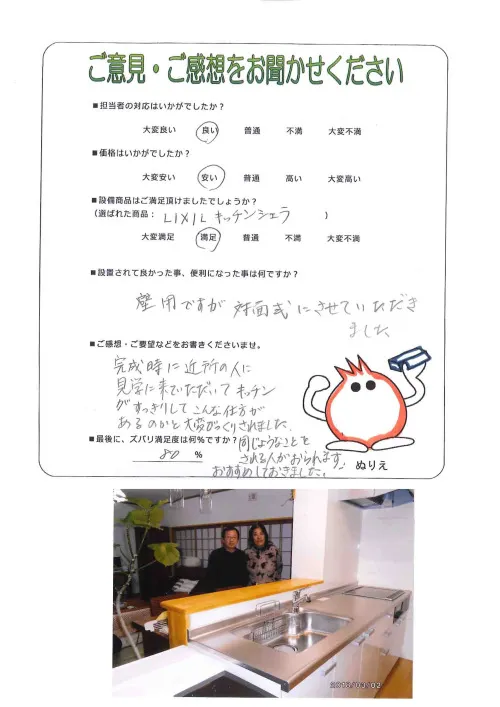 ご意見・ご感想をお聞かせください
■担当者の対応はいかがでしたか？
大変良い 良い 普通 不満 大変不満
■価格はいかがでしたか？
大変安い 安い 普通 高い 大変高い
■設備商品はご満足頂けましたでしょうか？
（選ばれた商品： LIXIL キッチンシエラ ）
大変満足 満足 普通 不満 大変不満
■設置されて良かった事、便利になった事は何ですか？
壁用ですが 対面式にさせていただき
ました
■ご感想・ご要望などをお書きくださいませ。
完成時に近所の人に
見学に来ていただいてキッチン
がすっきりしてこんな仕方が
あるのかと大変びっくりされました。
■最後に、ズバリ満足度は何％ですか？
80 ％
同じようなことを
される人がおられます。
おすすめしておきました。
ぬりえ
2013/03/02